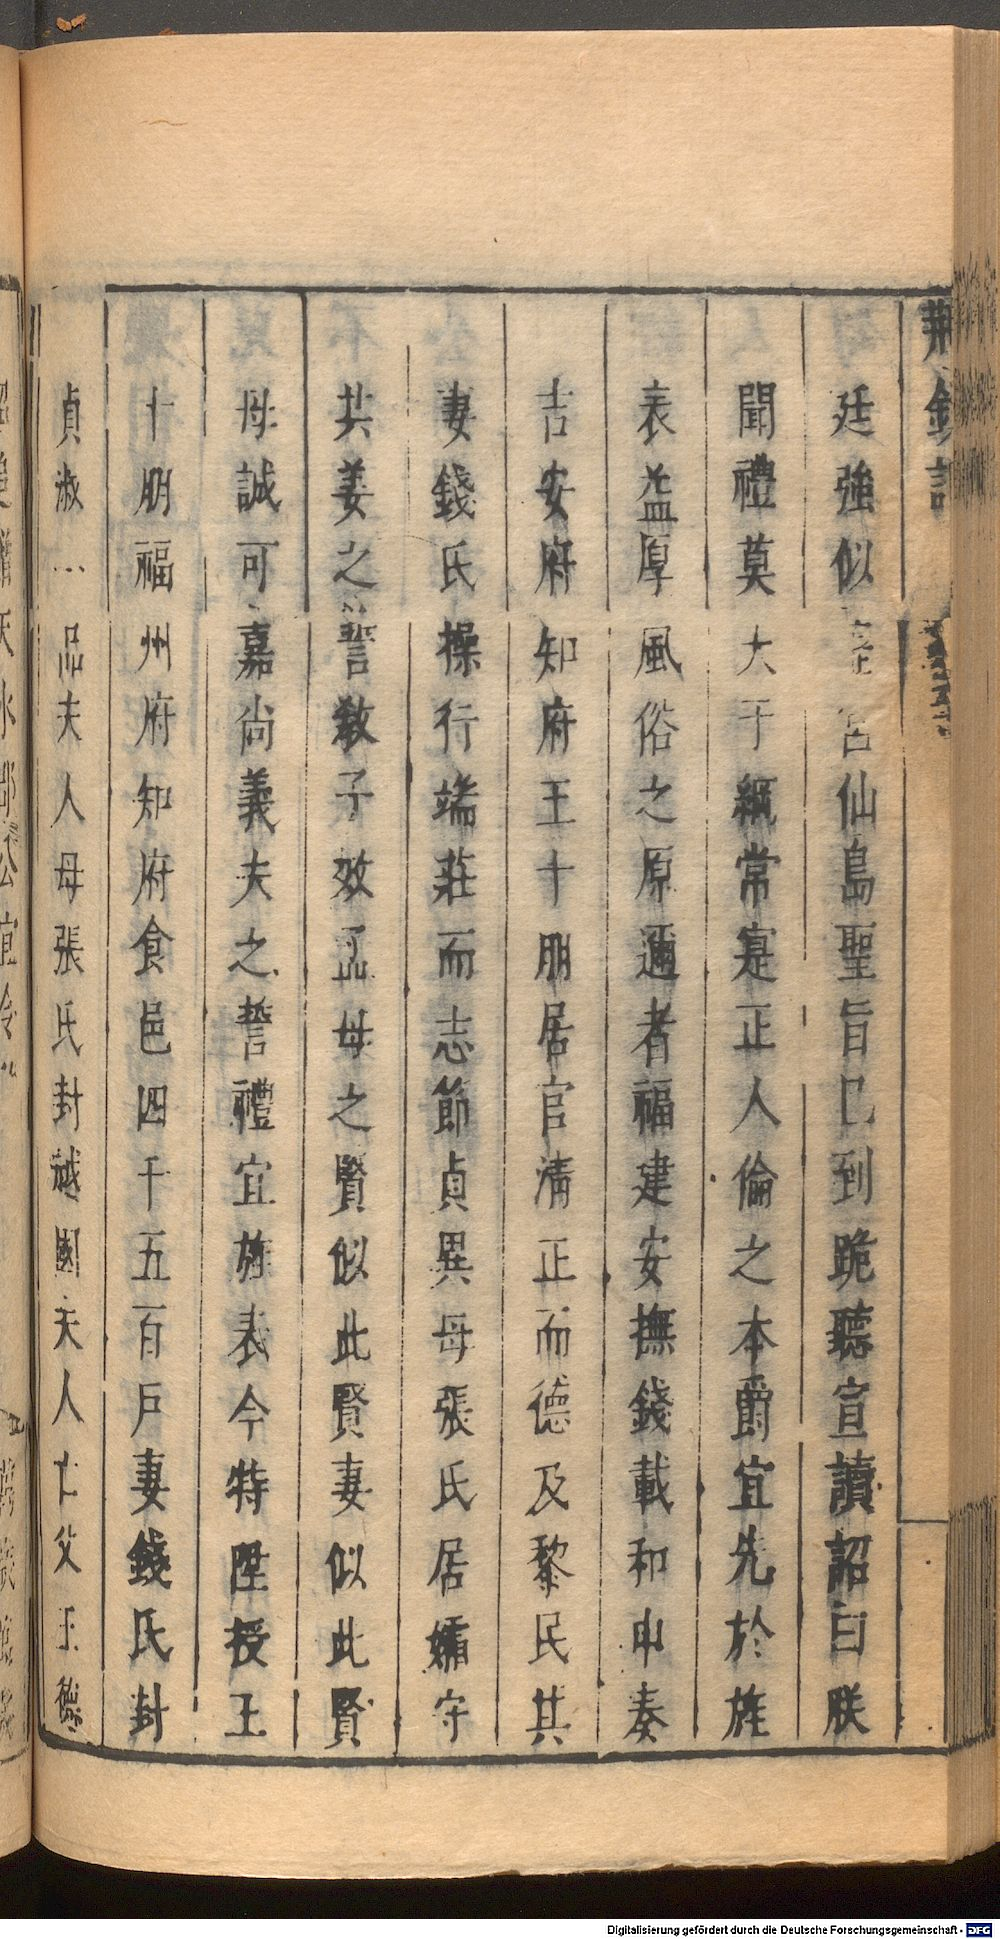 荆釵記
廷強似 宮仙島聖旨已到跪聽宣讀詔曰朕
聞禮莫大于綱常寔正人倫之本爵宜先於旌
表益厚風俗之原邇者福建安撫錢載和申奏
吉安府知府王十朋居官清正而德及黎民其
妻錢氏操行端莊而志節貞異母張氏居孀守
共姜之誓教子效孟母之賢似此賢妻似此賢
母誠可嘉尚義夫之誓禮宜旌表今特陞授王
十朋福州府知府食邑四千五百戶妻錢氏封
貞淑一品夫人母張氏封越國夫人亡父王德
Digitalisierung gefördert durch die Deutsche Forschungsgemeinschaft - DFG